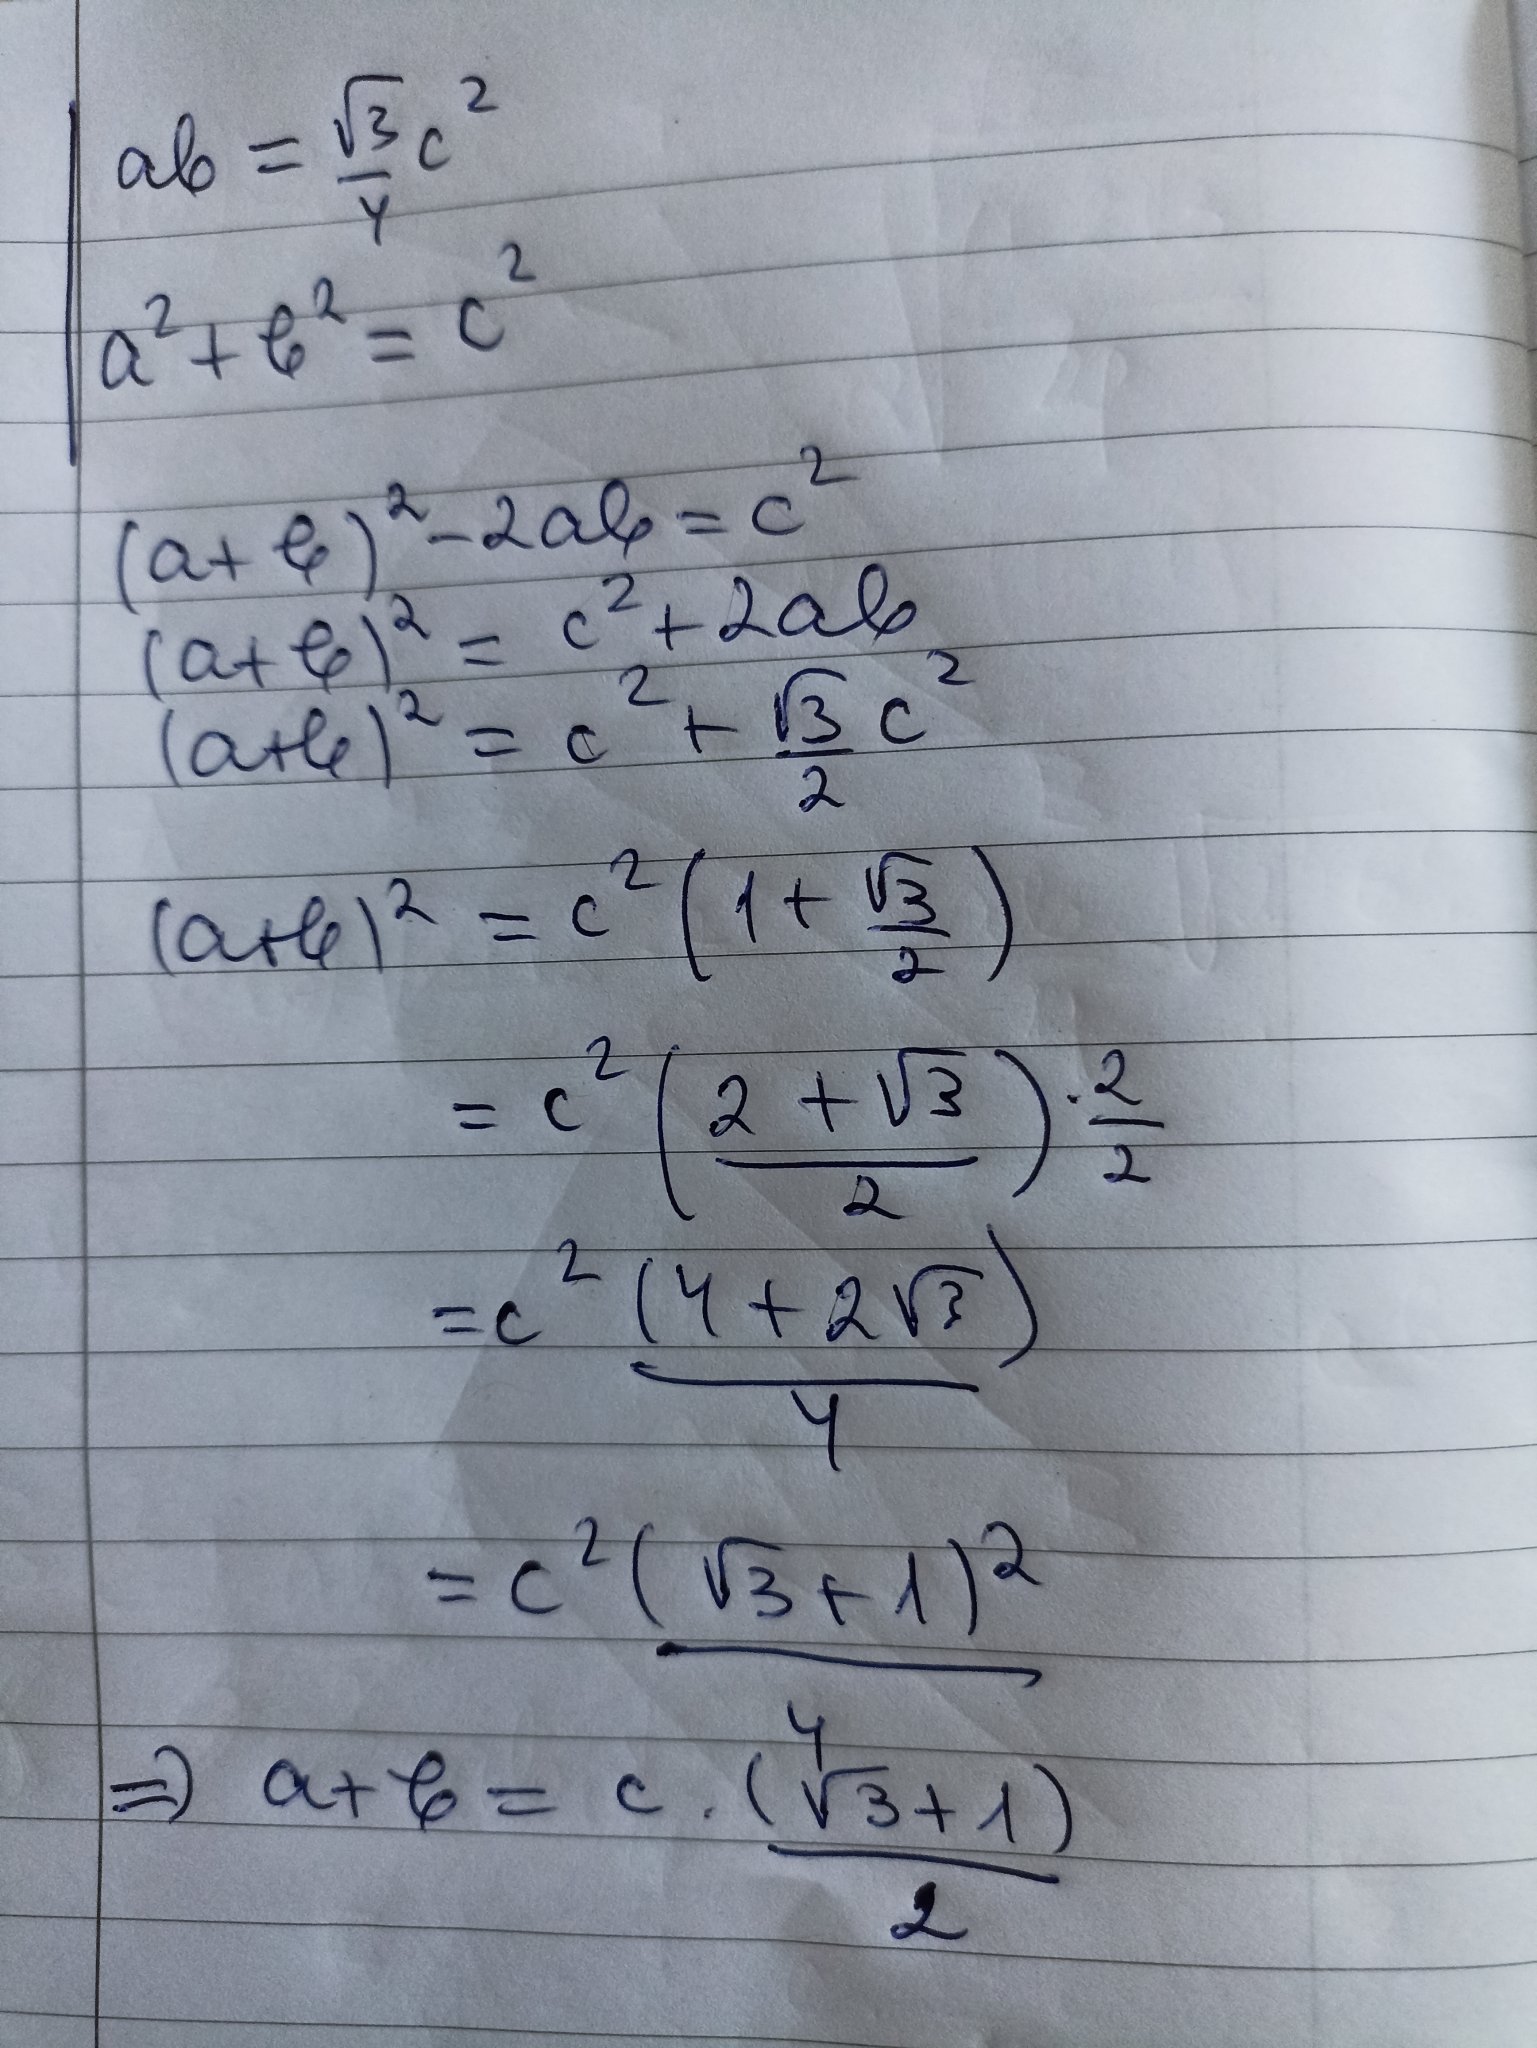 ab = √3/4 c²
a² + b² = c²
(a+b)² - 2ab = c²
(a+b)² = c² + 2ab
(a+b)² = c² + √3/2 c²
(a+b)² = c² (1 + √3/2)
= c² ((2 + √3)/2) · 2/2
= c² (4 + 2√3)/4
= c² (√3 + 1)²/4
⇒ a+b = c · (√3+1)/2